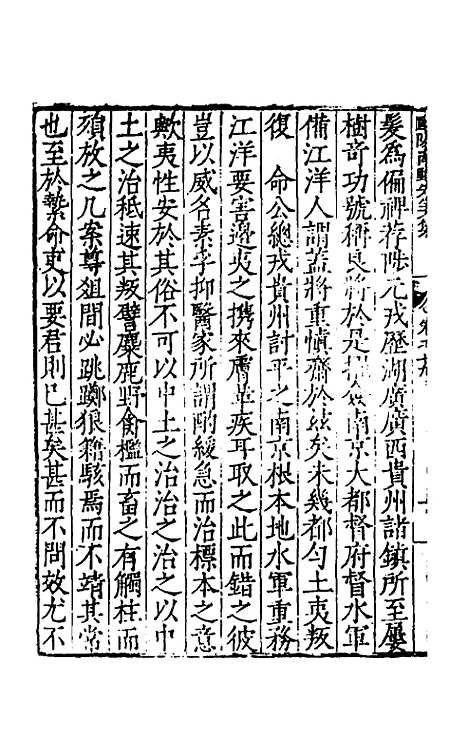 歐陽南野先生文集
髮為偏裨荐陟元戎歷湖廣廣西貴州諸鎮所至屢
樹奇功號稱良將於是擢僉南京大都督府督水軍
備江洋人謂蓋將重慎齋於茲矣未幾都勻土夷叛
復　命公總戎貴州討平之南京根本地水軍重務
江洋要害邊夷之攜來膚革疾耳取之此而錯之彼
豈以威名素孚抑醫家所謂酌緩急而治標本之意
歟夷性安於其俗不可以中土之治治之治之以中
土之治秪速其叛譬麋鹿野禽檻而畜之有觸柱而
須放之几案尊俎間必跳躑狼籍駭焉而不靖其常
也至於縶命吏以要君則已甚矣甚而不問效尤不